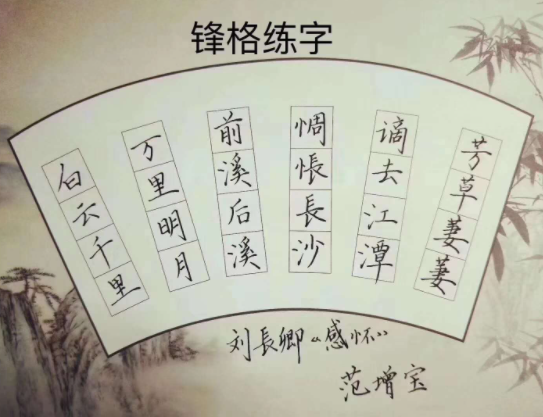 锋格练字
白云千里
万里明月
前溪后溪
惆悵長沙
谪去江潭
芳草萋萋
刘長卿“感怀”
范增宝